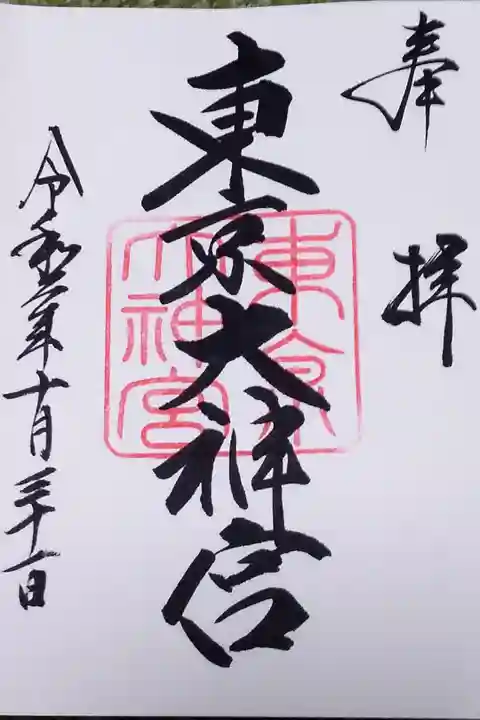 奉拝
東京大神宮
東京
大神宮
令和六年十月三十一日